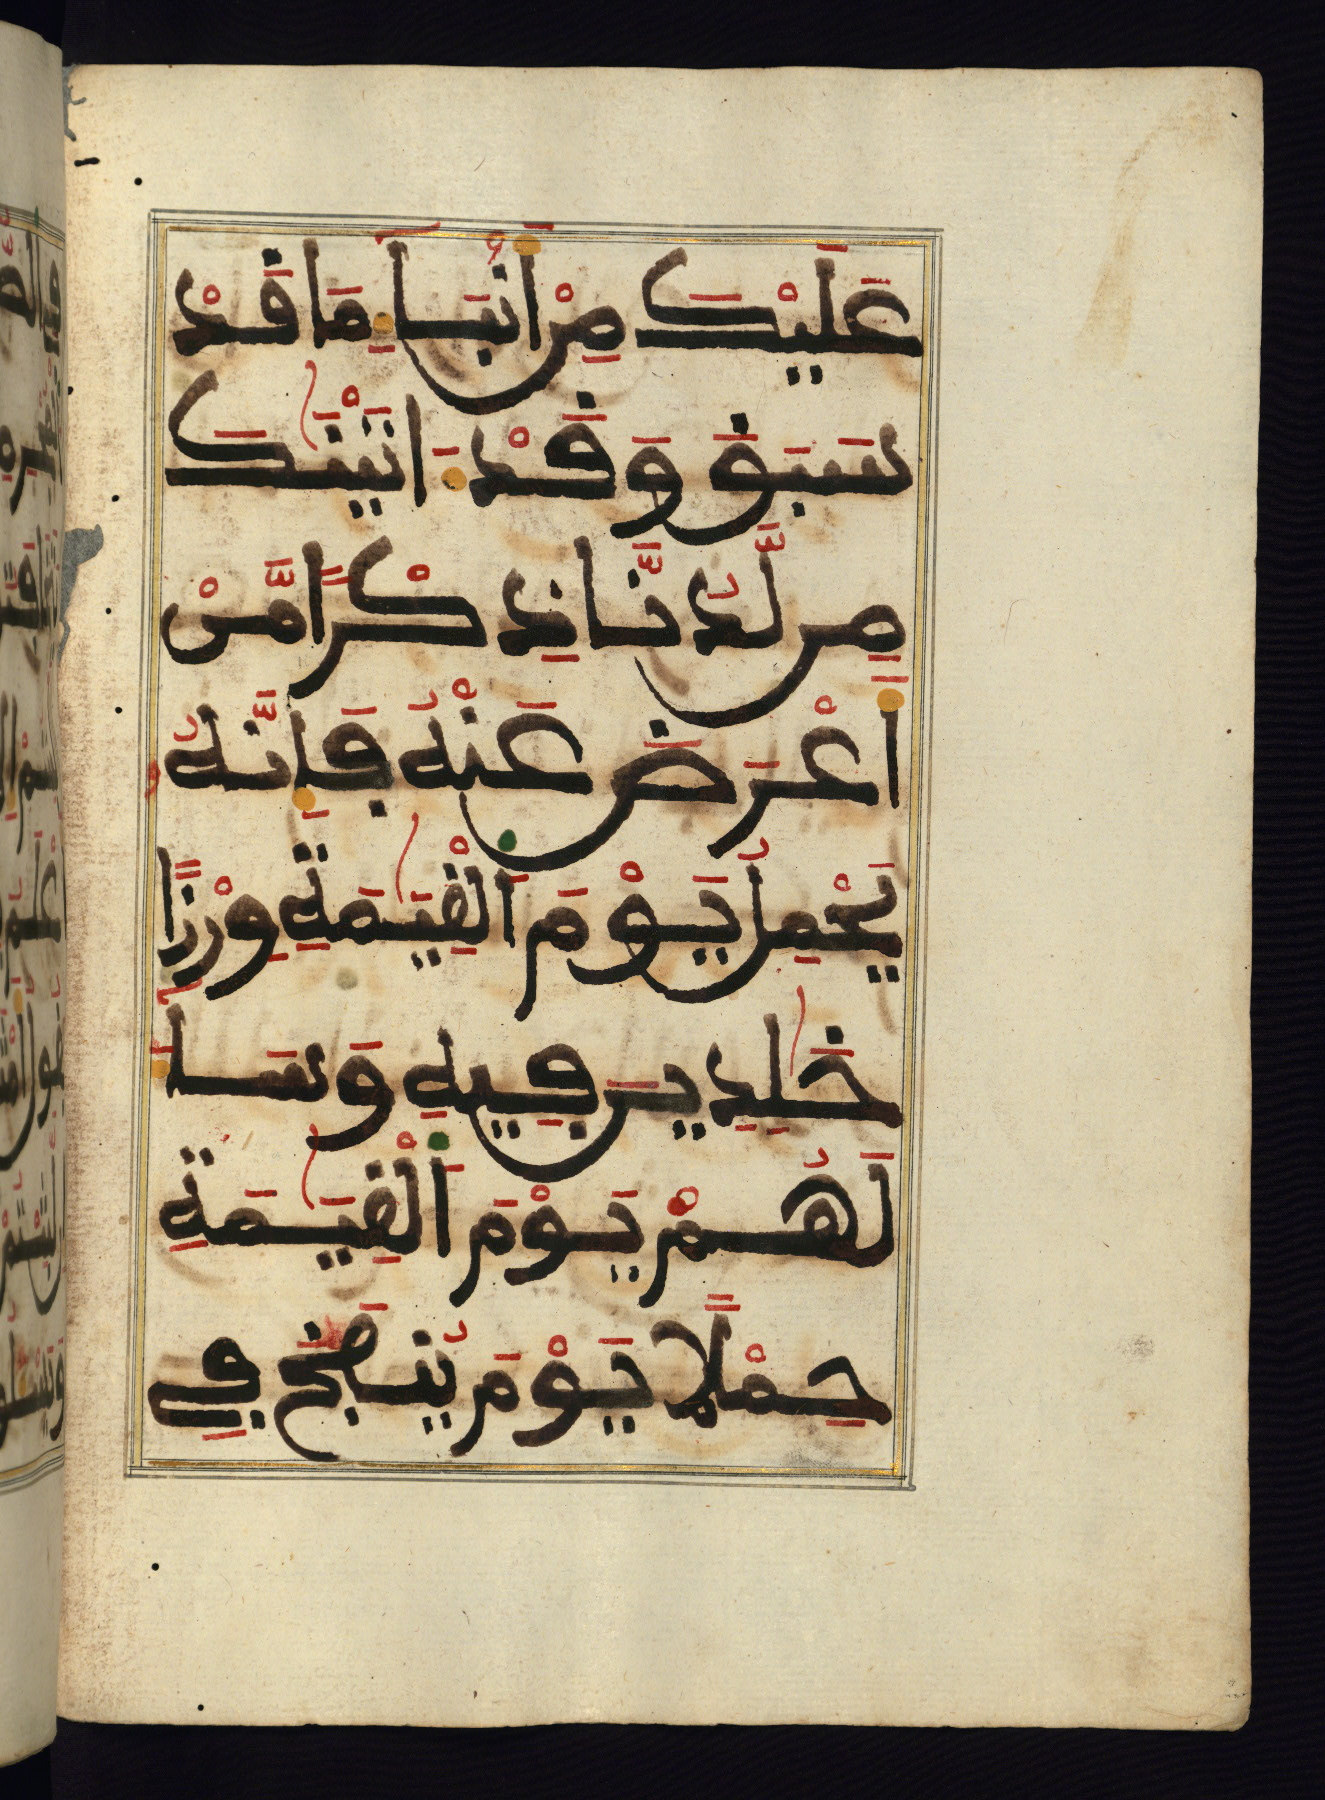 عَلَيْكَ مِنَ اَنۢبَآءِ مَا قَدْ
سَبَقَ وَقَدَ اتَيْنَٰكَ
مِن لَّدُنَّا ذِكْرًا مَّنَ
اَعْرَضَ عَنْهُ فَإِنَّهُۥ
يَحْمِلُ يَوْمَ اَلْقِيَٰمَةِ وِزْرًا
خَٰلِدِينَ فِيهِ وَسَآءَ
لَهُمْ يَوْمَ اَلْقِيَٰمَةِ
حِمْلًا يَوْمَ يُنفَخُ فِي